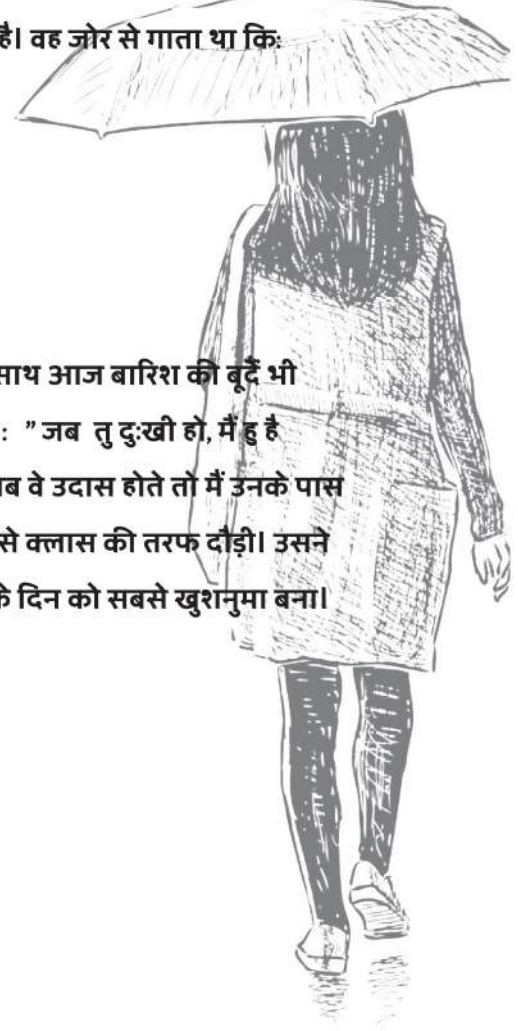 है। वह जोर से गाता था कि:
साथ आज बारिश की बूदैं भी
: ” जब तु दुःखी हो, मैं हु है
ब वे उदास होते तो मैं उनके पास
से क्लास की तरफ दौड़ी। उसने
के दिन को सबसे खुशनुमा बना।